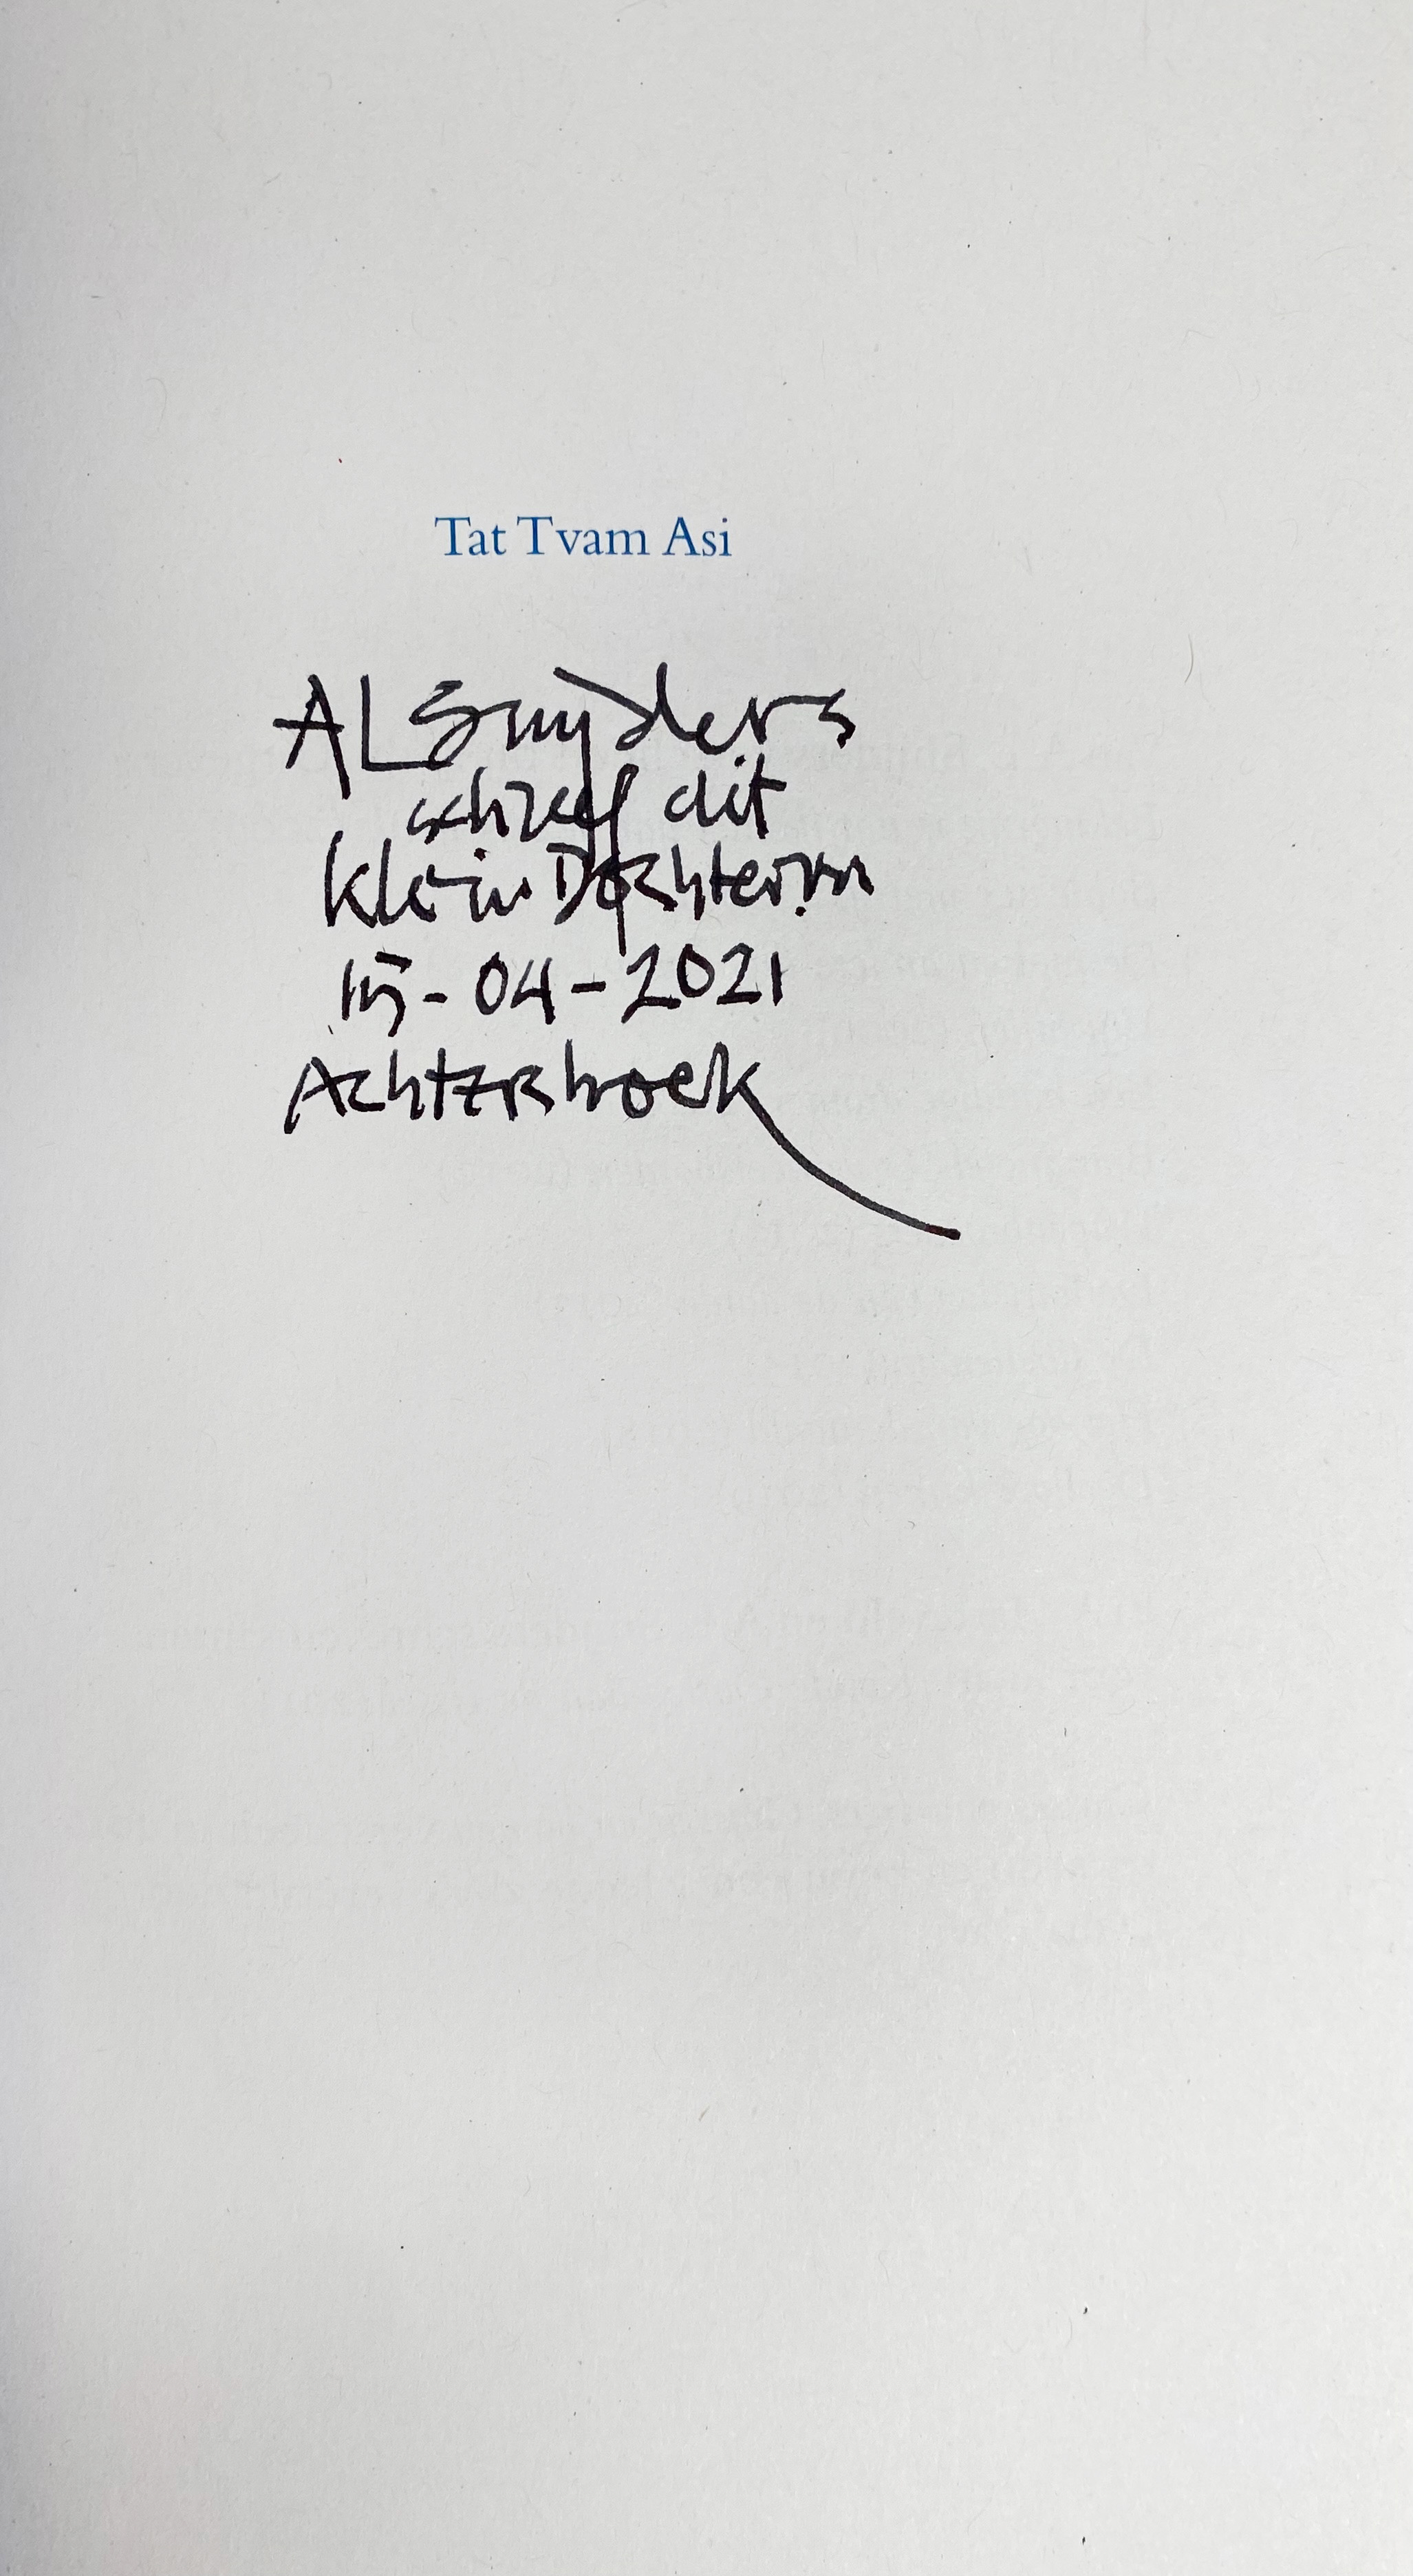 Tat Tvam Asi
AL Snijders
schreef dit
klein Dochter
15-04-2021
Achterhoek